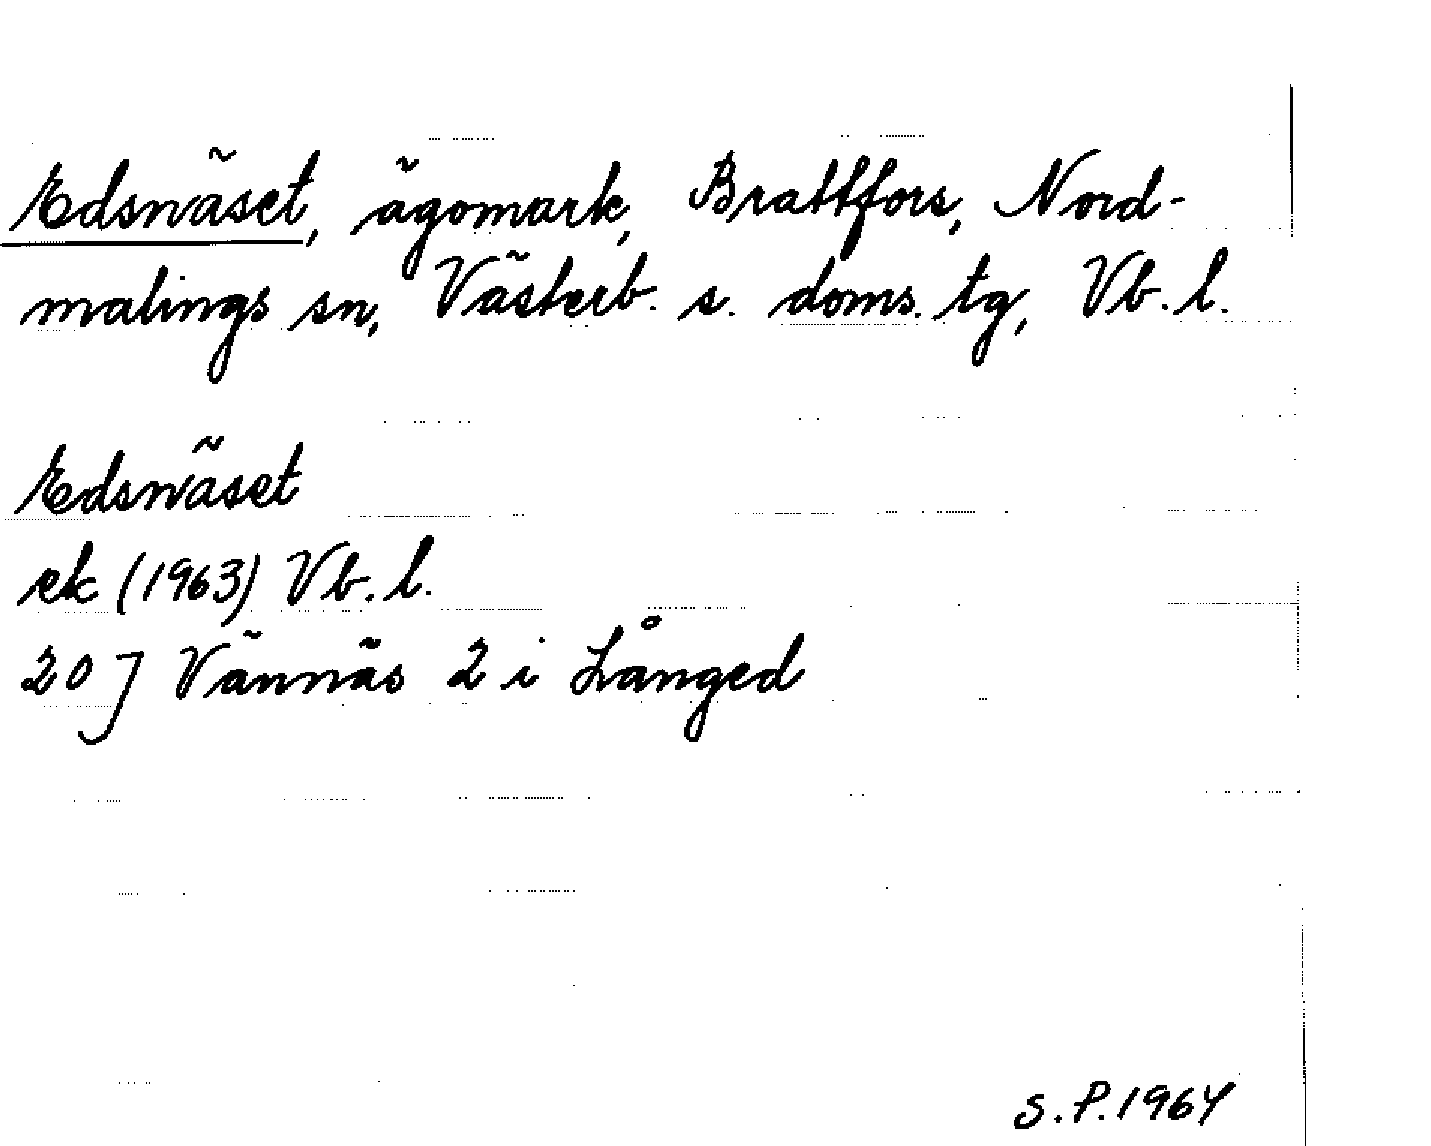 Edsnäset, ägomark, Brattfors, Nord-
malings sn, Västerb. s. doms. tg, Vb. l.
Edsnäset
ek (1963) Vb. l.
20 J Vännäs 2 i Långed
S. P. 1964